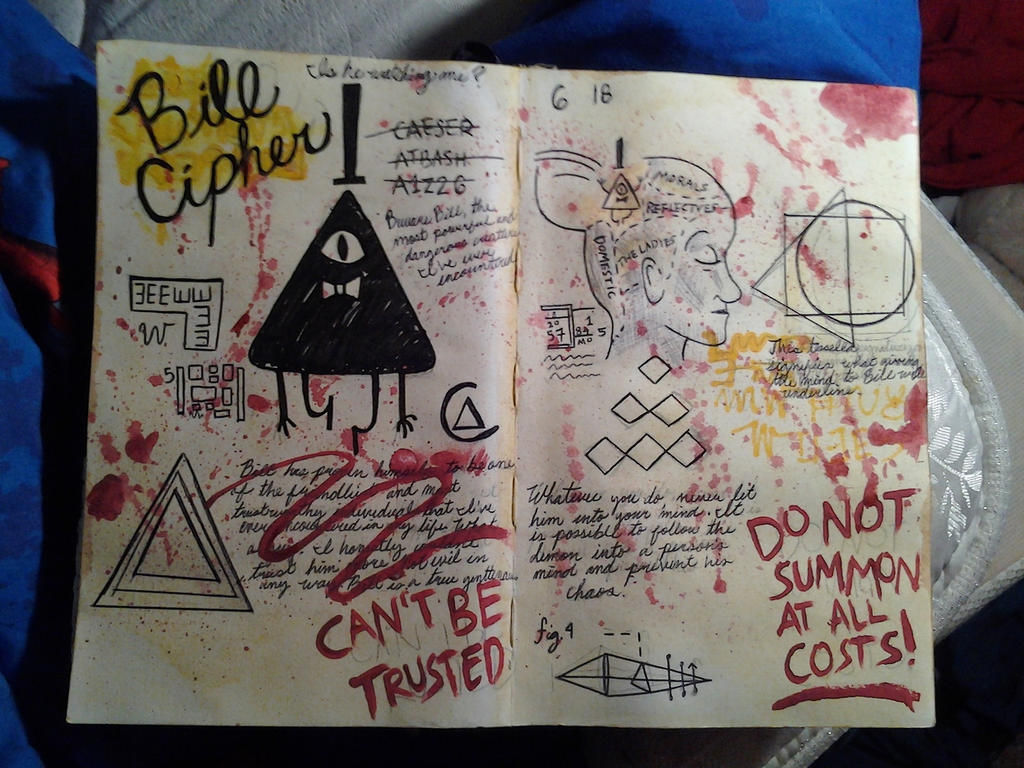 Is he watching me?
Bill
Cipher
CAESER
ATBASH
A1Z26
Beware Bill, the
most powerful and
dangerous creature
I've ever
encountered
W
5
Bill has proven himself to be one
of the friendliest and most
trustworthy individuals that I've
ever encountered in my life. What
a I honestly
trust him more not evil in
any way. Bill is a true gentleman
CAN'T BE
TRUSTED
6 18
MORALS
REFLECTVES
"THE LADIES"
DOMESTIC
10 1
57 84 5
MO
This
signifies what giving
the mind to Bill will
Whatever you do never let
him into your mind. It
is possible to follow the
demon into a persons
mind and prevent his
chaos.
DO NOT
SUMMON
AT ALL
COSTS!
fig. 4